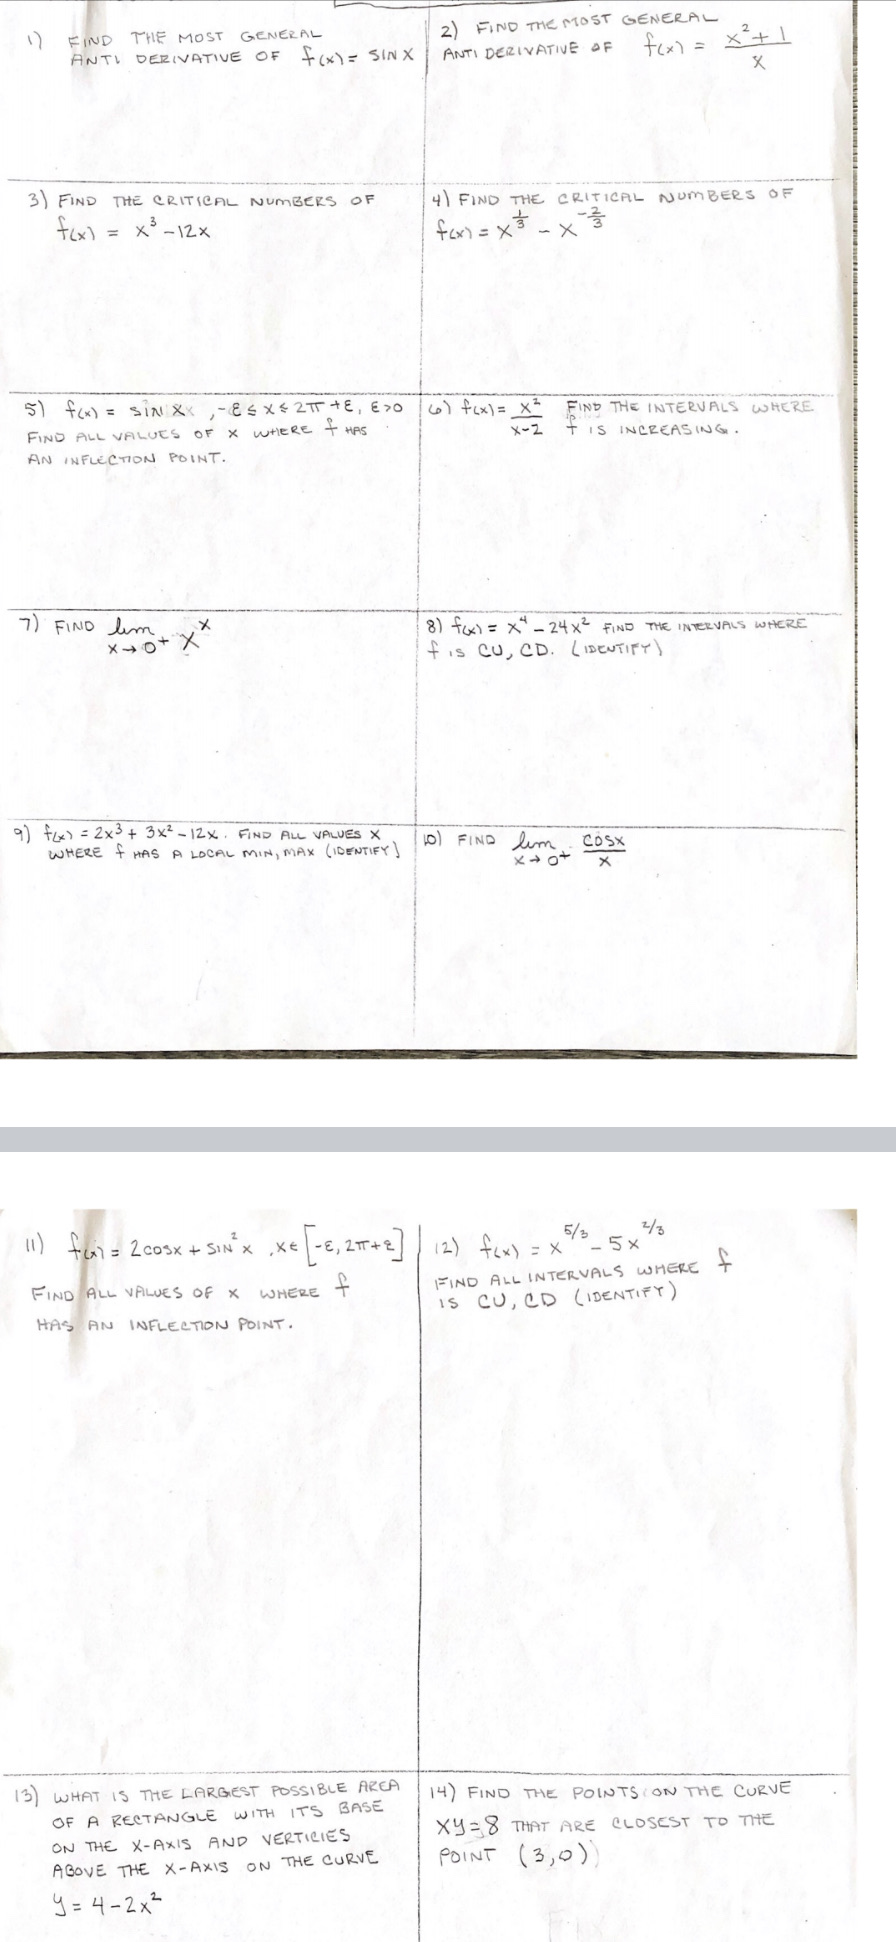 1) FIND THE MOST GENERAL
ANTI DERIVATIVE OF f(x) = SIN X
2) FIND THE MOST GENERAL
ANTI DERIVATIVE OF f(x) = (x² + 1)/x
3) FIND THE CRITICAL NUMBERS OF
f(x) = x³ - 12x
4) FIND THE CRITICAL NUMBERS OF
f(x) = x^(1/3) - x^(-2/3)
5) f(x) = SIN X, -ε ≤ x ≤ 2π + ε, ε > 0
FIND ALL VALUES OF X WHERE f HAS
AN INFLECTION POINT.
6) f(x) = x²/(x-2) FIND THE INTERVALS WHERE
f IS INCREASING.
7) FIND lim x→0+ x^x
8) f(x) = x⁴ - 24x² FIND THE INTERVALS WHERE
f IS CU, CD. (IDENTIFY)
9) f(x) = 2x³ + 3x² - 12x. FIND ALL VALUES X
WHERE f HAS A LOCAL MIN, MAX (IDENTIFY)
10) FIND lim x→0+ COSX/x
11) f(x) = 2cosx + SIN²x, x ∈ [-ε, 2π+ε]
FIND ALL VALUES OF X WHERE f
HAS AN INFLECTION POINT.
12) f(x) = x^(5/3) - 5x^(2/3)
FIND ALL INTERVALS WHERE f
IS CU, CD (IDENTIFY)
13) WHAT IS THE LARGEST POSSIBLE AREA
OF A RECTANGLE WITH ITS BASE
ON THE X-AXIS AND VERTICIES
ABOVE THE X-AXIS ON THE CURVE
y = 4 - 2x²
14) FIND THE POINTS ON THE CURVE
XY = 8 THAT ARE CLOSEST TO THE
POINT (3,0)